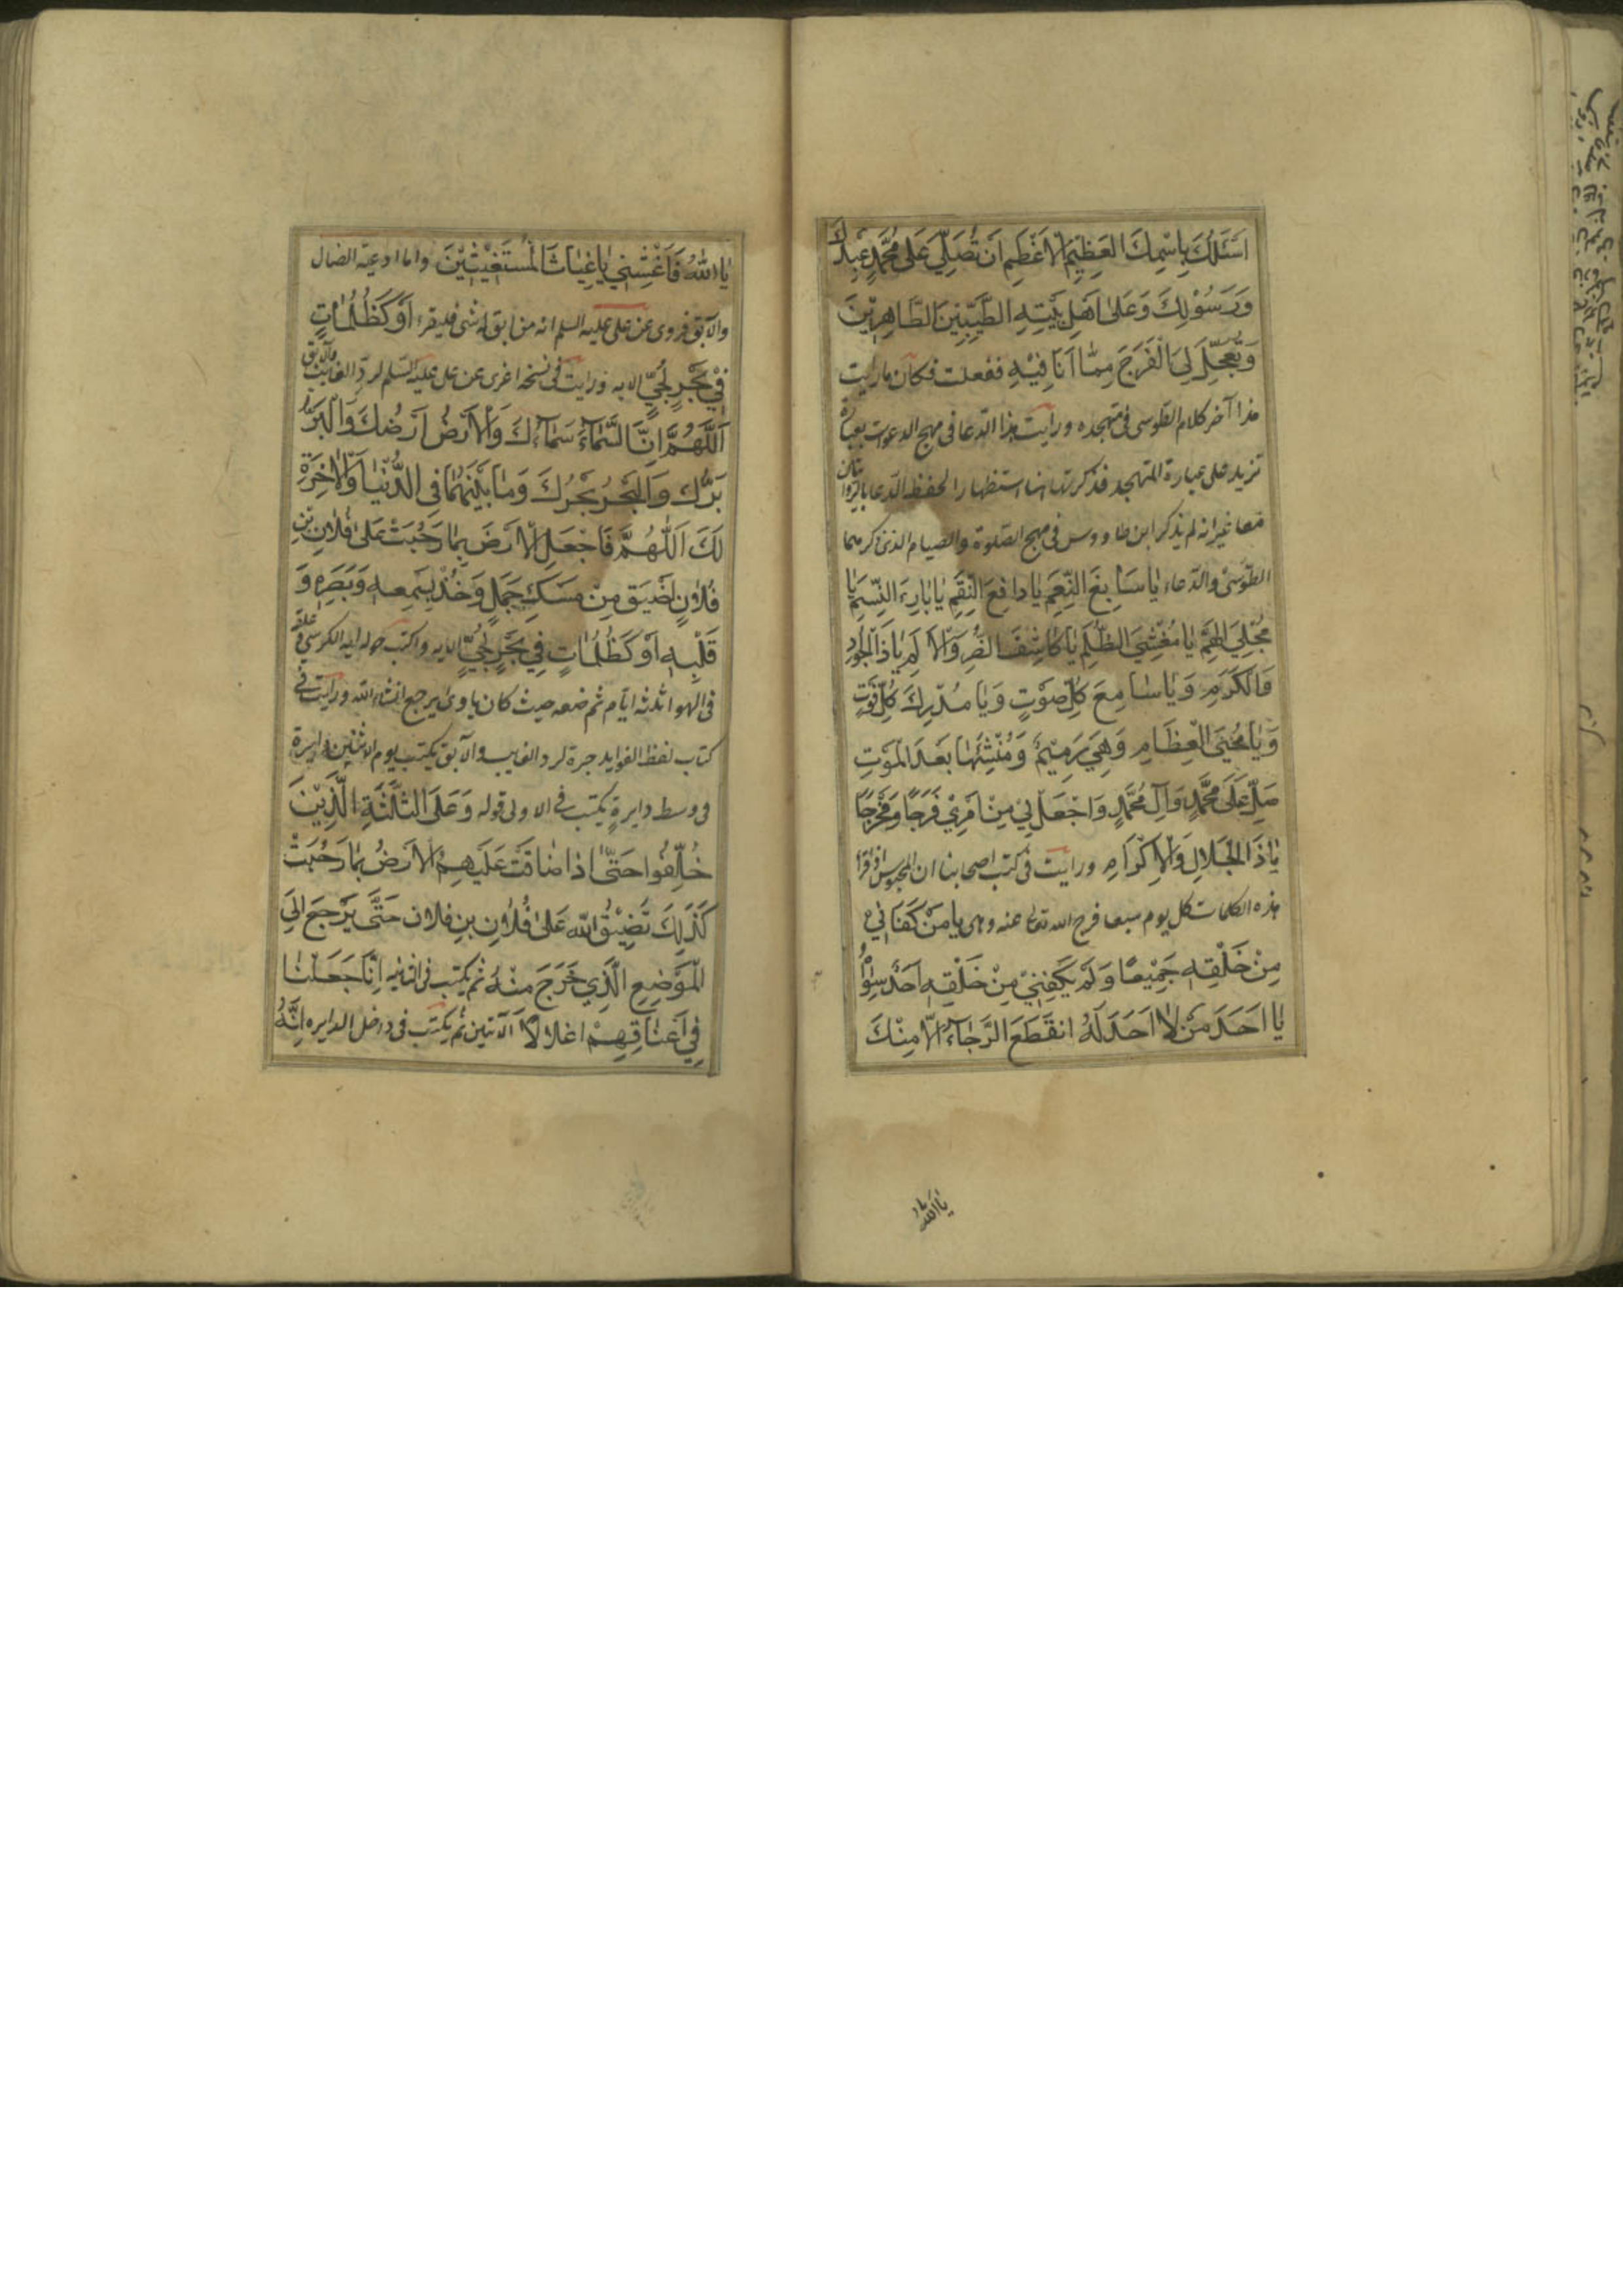 اَسْئَلُكَ بِاسْمِكَ الْعَظِيْمِ الْاَعْظَمِ اَنْ تُصَلِّيَ عَلٰى مُحَمَّدٍ عَبْدِكَ
وَرَسُوْلِكَ وَعَلٰى اَهْلِ بَيْتِهِ الطَّيِّبِيْنَ الطَّاهِرِيْنَ
وَتُعَجِّلَ لِيَ الْفَرَجَ مِمَّا اَنَا فِيْهِ ففعلت فكان ما رايت
هذا آخر كلام الطوسى فى متهجده ورايت هذا الدعا فى مهج الدعوات بعبارة
تزيد على عبارة المتهجد فذكرتها هنا استظهارا لحفظ الدعا بالروايتان
معا غير انه لم يذكر ابن طاووس فى مهج الصلوة والصيام الذى ذكرهما
الطوسى والدعاء يَا سَابِغَ النِّعَمِ يَا دَافِعَ النِّقَمِ يَا بَارِءَ النَّسَمِ يَا
مُجَلِّيَ الْهِمَمِ يَا مُغْشِيَ الظُّلَمِ يَا كَاشِفَ الضُّرِّ وَالْاَلَمِ يَا ذَا الْجُوْدِ
وَالْكَرَمِ وَيَا سَامِعَ كُلِّ صَوْتٍ وَيَا مُدْرِكَ كُلِّ فَوْتٍ
وَيَا مُحْيِيَ الْعِظَامِ وَهِيَ رَمِيْمٌ وَمُنْشِئَهَا بَعْدَ الْمَوْتِ
صَلِّ عَلٰى مُحَمَّدٍ وَآلِ مُحَمَّدٍ وَاجْعَلْ لِيْ مِنْ اَمْرِيْ فَرَجًا وَمَخْرَجًا
يَا ذَا الْجَلَالِ وَالْاِكْرَامِ ورايت فى كتب اصحابنا ان المحبوس اذا قرأ
هذه الكلمات كل يوم سبعا فرج الله تعا عنه وهى يا مَنْ كَفَانِيْ
مِنْ خَلْقِهِ جَمِيْعًا وَلَمْ يَكْفِنِيْ مِنْ خَلْقِهِ اَحَدٌ سِوَاهُ
يَا اَحَدَ مَنْ لَا اَحَدَ لَهُ انْقَطَعَ الرَّجَآءُ اِلَّا مِنْكَ
يَا اَللّٰهُ
يَا اَللّٰهُ فَاَغِثْنِيْ يَا غِيَاثَ الْمُسْتَغِيْثِيْنَ واما ادعية الضال
والآبق فروى عن على عليه السلم انه من ابق له شى فليقرء اَوْ كَظُلُمَاتٍ
فِيْ بَحْرٍ لُجِّيٍّ الايه ورايت فى نسخه اخرى عن على عليه السلم لرد الغائب والآبق
اَللّٰهُمَّ اِنَّ السَّمَآءَ سَمَآءُكَ وَالْاَرْضُ اَرْضُكَ وَالْبَرَّ
بَرُّكَ وَالْبَحْرُ بَحْرُكَ وَمَا بَيْنَهُمَا فِي الدُّنْيَا وَالْاٰخِرَةِ
لَكَ اَللّٰهُمَّ فَاجْعَلِ الْاَرْضَ بِمَا رَحُبَتْ عَلٰى فُلَانِ بْنِ
فُلَانٍ اَضْيَقَ مِنْ مَسْكِ جَمَلٍ وَخُذْ بِسَمْعِهِ وَبَصَرِهِ وَ
قَلْبِهِ اَوْ كَظُلُمَاتٍ فِيْ بَحْرٍ لُجِّيٍّ الايه واكتب حوله اية الكرسى وعلقه
فى الهوا ثلثه ايام ثم ضعه حيث كان ياوى يرجع انشاء الله ورايت فى
كتاب لفظ الفوايد جبرة لرد الغايب والآبق يكتب يوم الاثنين دايرة
فى وسط دايرةٍ يكتب فى الاولى قوله وَعَلَى الثَّلٰثَةِ الَّذِيْنَ
خُلِّفُوا حَتّٰى اِذَا ضَاقَتْ عَلَيْهِمُ الْاَرْضُ بِمَا رَحُبَتْ
كَذٰلِكَ تَضِيْقُ اللّٰهُ عَلٰى فُلَانِ بْنِ فلان حَتّٰى يَرْجِعَ اِلَى
الْمَوْضِعِ الَّذِي خَرَجَ مِنْهُ ثم يكتب فى الثانيه اِنَّا جَعَلْنَا
فِيْ اَعْنَاقِهِمْ اغلالًا الآيتين ثم يكتب فى داخل الدايره اِنَّهُ